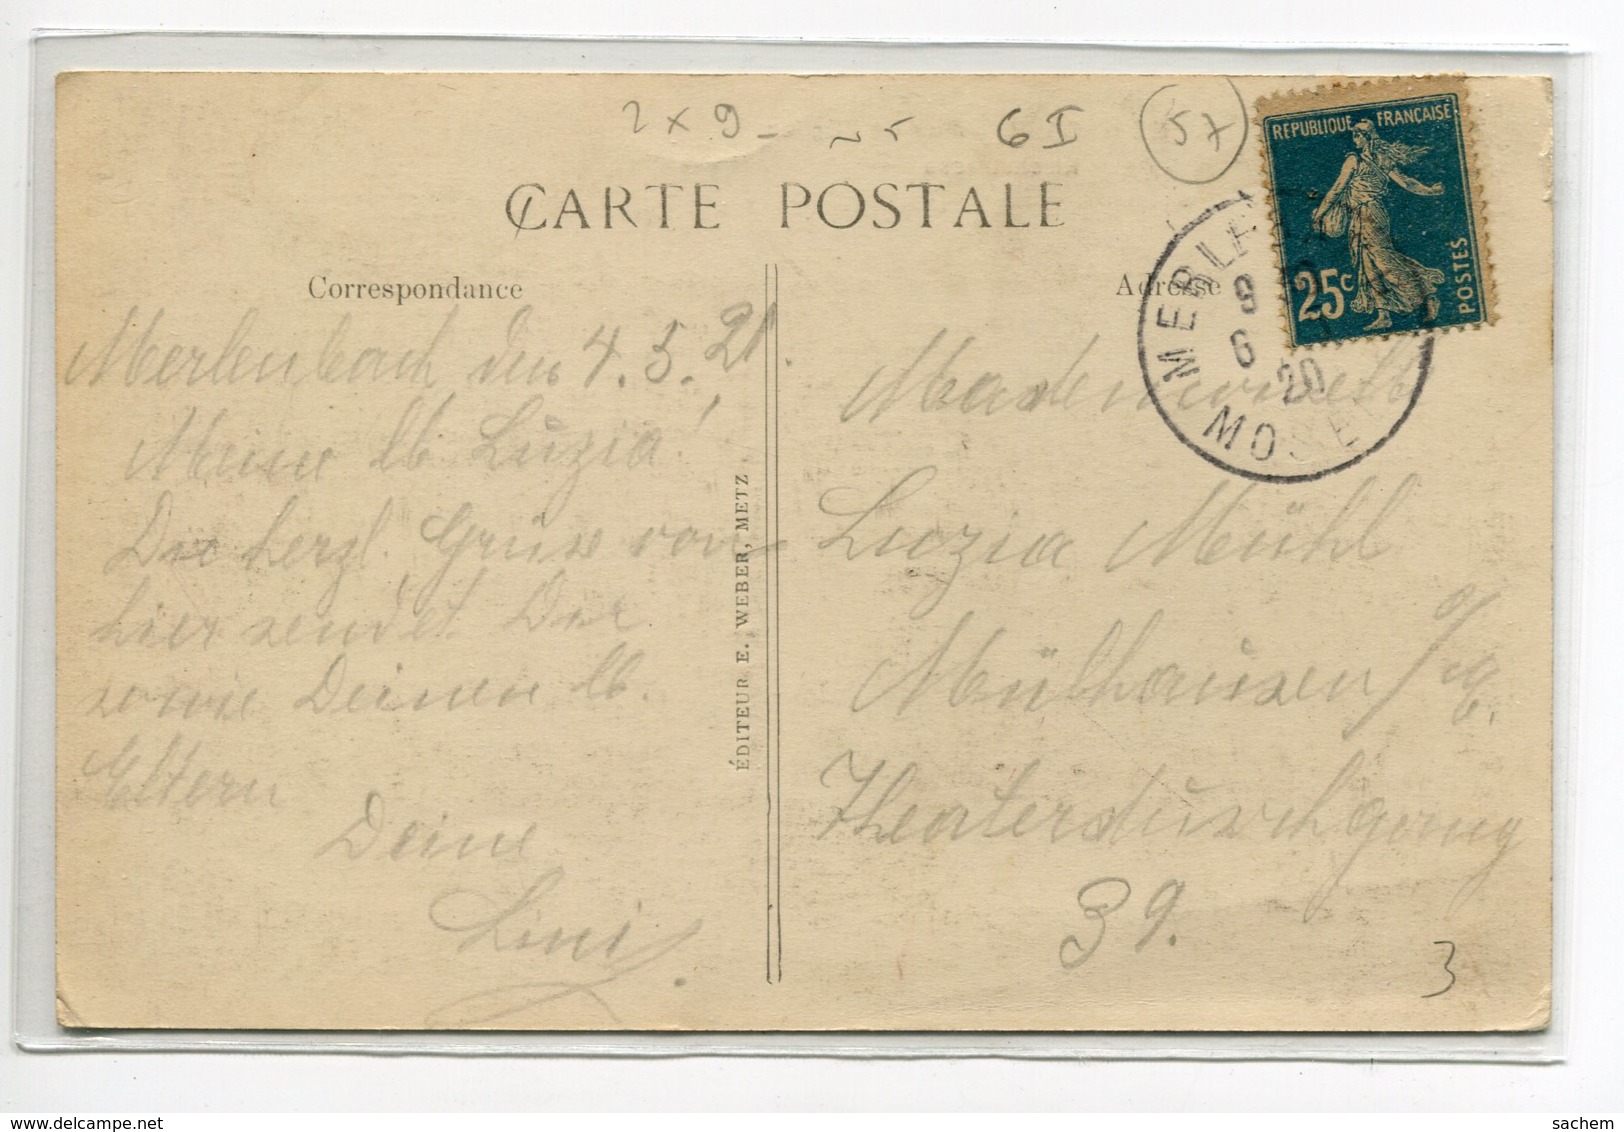 2 x 9 -
6 I
57
CARTE POSTALE
Correspondance
Adresse
REPUBLIQUE FRANÇAISE
25c
POSTES
MERLE
9
6
20
MOSE
Merlenbach den 4.5.21.
Meine lb. Luzia!
Die herzl. Grüsse von
hier sendet Dir
sowie Deinen lb.
Eltern
Deine
Lini.
ÉDITEUR E. WEBER, METZ
Mademoiselle
Luzia Mühl
Mülhausen o/E.
Theaterdurchgang
39.
3
sachem